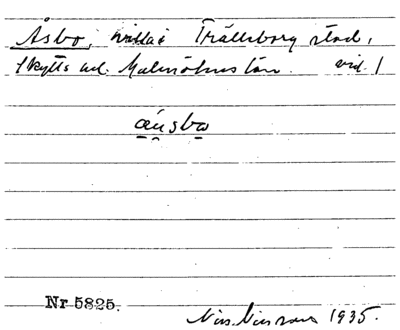 Åsbo, villa i Trälleborg stad,
Skytts hd. Malmöhus län. vid. 1
åu̯sbω
Nr 5825.
Nils Nilsson 1935.